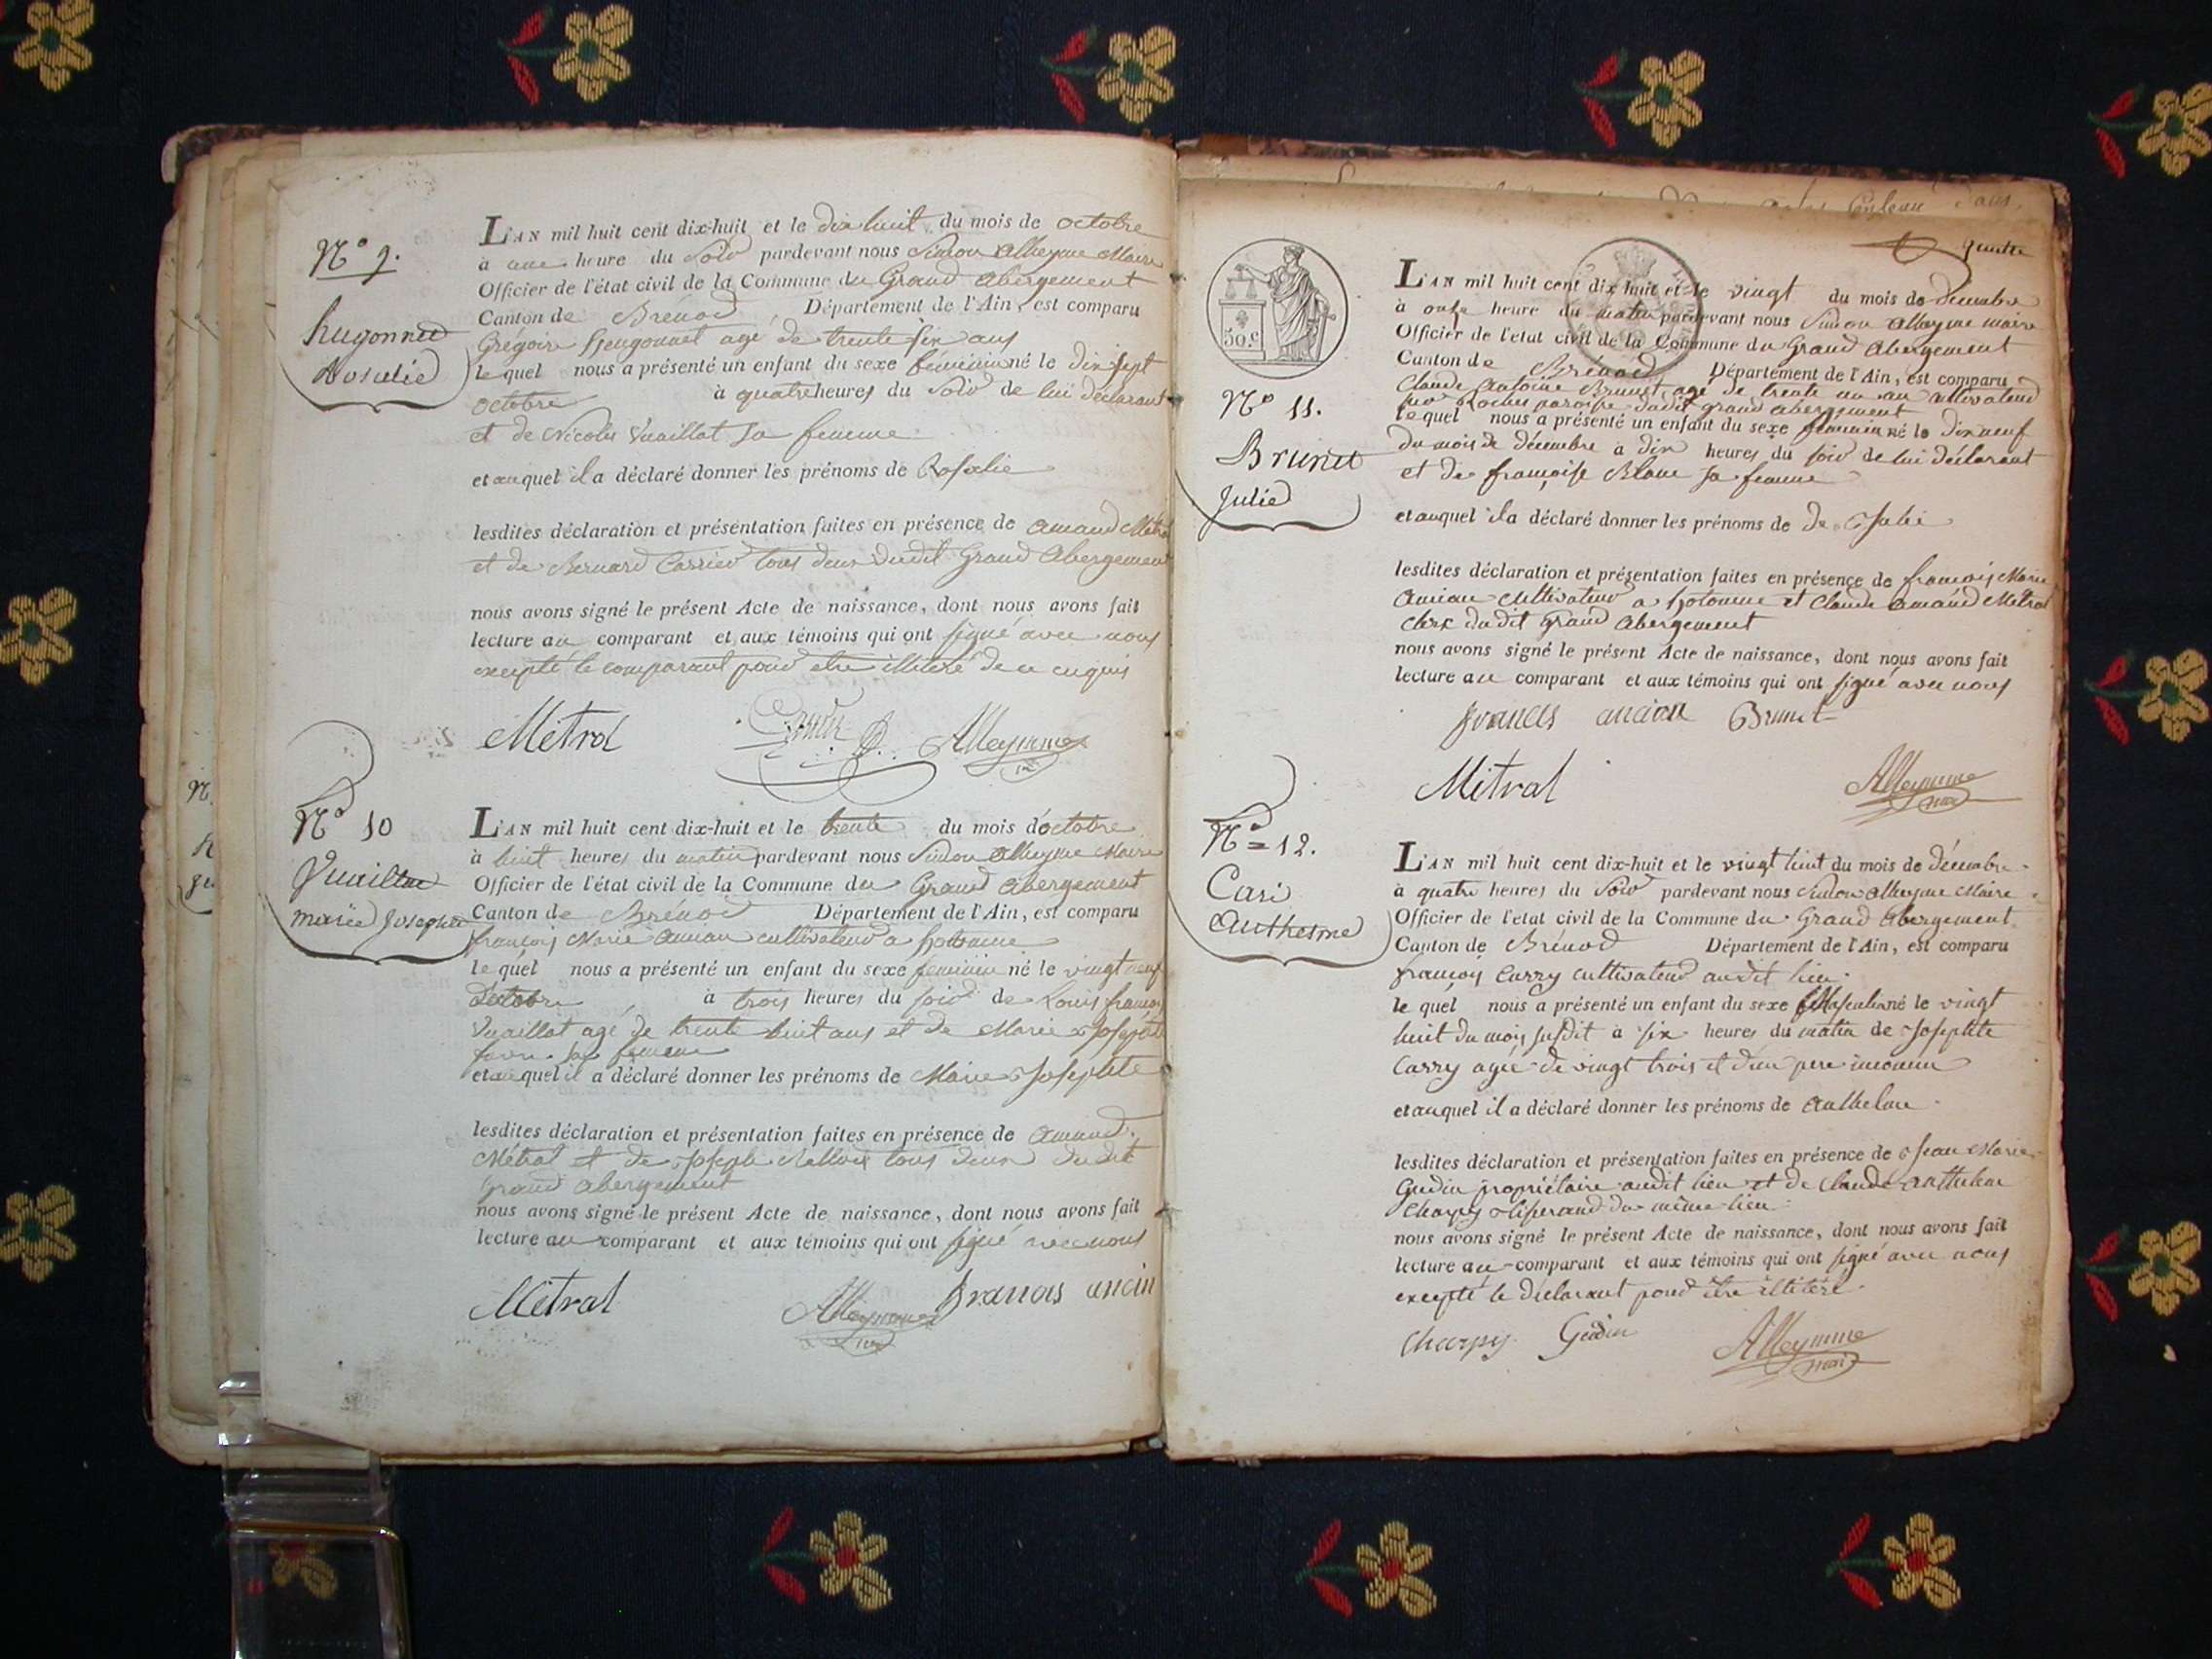 N° 9.
hugonnet
Rosalie
L'AN mil huit cent dix-huit et le dix huit du mois de octobre
à une heure du soir pardevant nous Simon Alleyme Maire
Officier de l'état civil de la Commune du Grand abergement
Canton de Brénod Département de l'Ain, est comparu
Grégoire hugonnet agé de trente six ans
le quel nous a présenté un enfant du sexe féminin né le dix sept
octobre à quatre heures du soir de lui déclarant
et de Nicole Vuaillat sa femme
et auquel il a déclaré donner les prénoms de Rosalie
lesdites déclaration et présentation faites en présence de amand Métral
et de Bernard Carrier tous deux dudit Grand Abergement
nous avons signé le présent Acte de naissance, dont nous avons fait
lecture au comparant et aux témoins qui ont signé avec nous
excepté le comparant pour etre illitéré de ce enquis
Métral Alleymme
N° 10
Vuaillat
marie Josephte
L'AN mil huit cent dix-huit et le trente du mois d'octobre
à huit heures du matin pardevant nous Simon Alleyme Maire
Officier de l'état civil de la Commune du Grand abergement
Canton de Brénod Département de l'Ain, est comparu
françois Marie Ancian cultivateur a hotonne
le quel nous a présenté un enfant du sexe féminin né le vingt neuf
d'octobre à trois heures du soir de Louis françois
Vuaillat agé de trente huit ans et de Marie Josephte
favre sa femme
et auquel il a déclaré donner les prénoms de Marie Josephte
lesdites déclaration et présentation faites en présence de Amand
Métral et de Joseph tous deux dudit
Grand abergement
nous avons signé le présent Acte de naissance, dont nous avons fait
lecture au comparant et aux témoins qui ont signé avec nous
Métral Alleymme Francois ancin
50 c
N° 11.
Brunet
Julie
L'AN mil huit cent dix huit et le vingt du mois de décembre
à onze heure du matin pardevant nous Simon Alleyme maire
Officier de l'etat civil de la Commune du Grand Abergement
Canton de Brénod Département de l'Ain, est comparu
Claude Antoine Brunet agé de trente un an cultivateur
Roches paroisse dudit grand abergement
le quel nous a présenté un enfant du sexe féminin né le dix neuf
du mois de décembre à dix heures du soir de lui déclarant
et de françoise Blanc sa femme
et auquel il a déclaré donner les prénoms de de Julie
lesdites déclaration et présentation faites en présence de françois Marie
Ancian cultivateur a hotonne et Claude amand Métral
clerc dudit Grand abergement
nous avons signé le présent Acte de naissance, dont nous avons fait
lecture au comparant et aux témoins qui ont signé avec nous
francois ancian Brunet
Métral Alleymme
N° 12.
Cari
Anthesme
L'AN mil huit cent dix-huit et le vingt huit du mois de décembre
à quatre heures du soir pardevant nous Simon Alleyme Maire
Officier de l'etat civil de la Commune du Grand Abergement
Canton de Brénod Département de l'Ain, est comparu
françois Carry cultivateur audit lieu
le quel nous a présenté un enfant du sexe Masculin né le vingt
huit du mois susdit à six heures du matin de Josephte
Carry agée de vingt trois et d'un pere inconnu
et auquel il a déclaré donner les prénoms de Anthelme
lesdites déclaration et présentation faites en présence de Jean Marie
Gudin propriétaire audit lieu et de Claude Anthelme
Charpy du même lieu
nous avons signé le présent Acte de naissance, dont nous avons fait
lecture au comparant et aux témoins qui ont signé avec nous
excepté le déclarant pour être illitéré
Charpy Gudin Alleymme